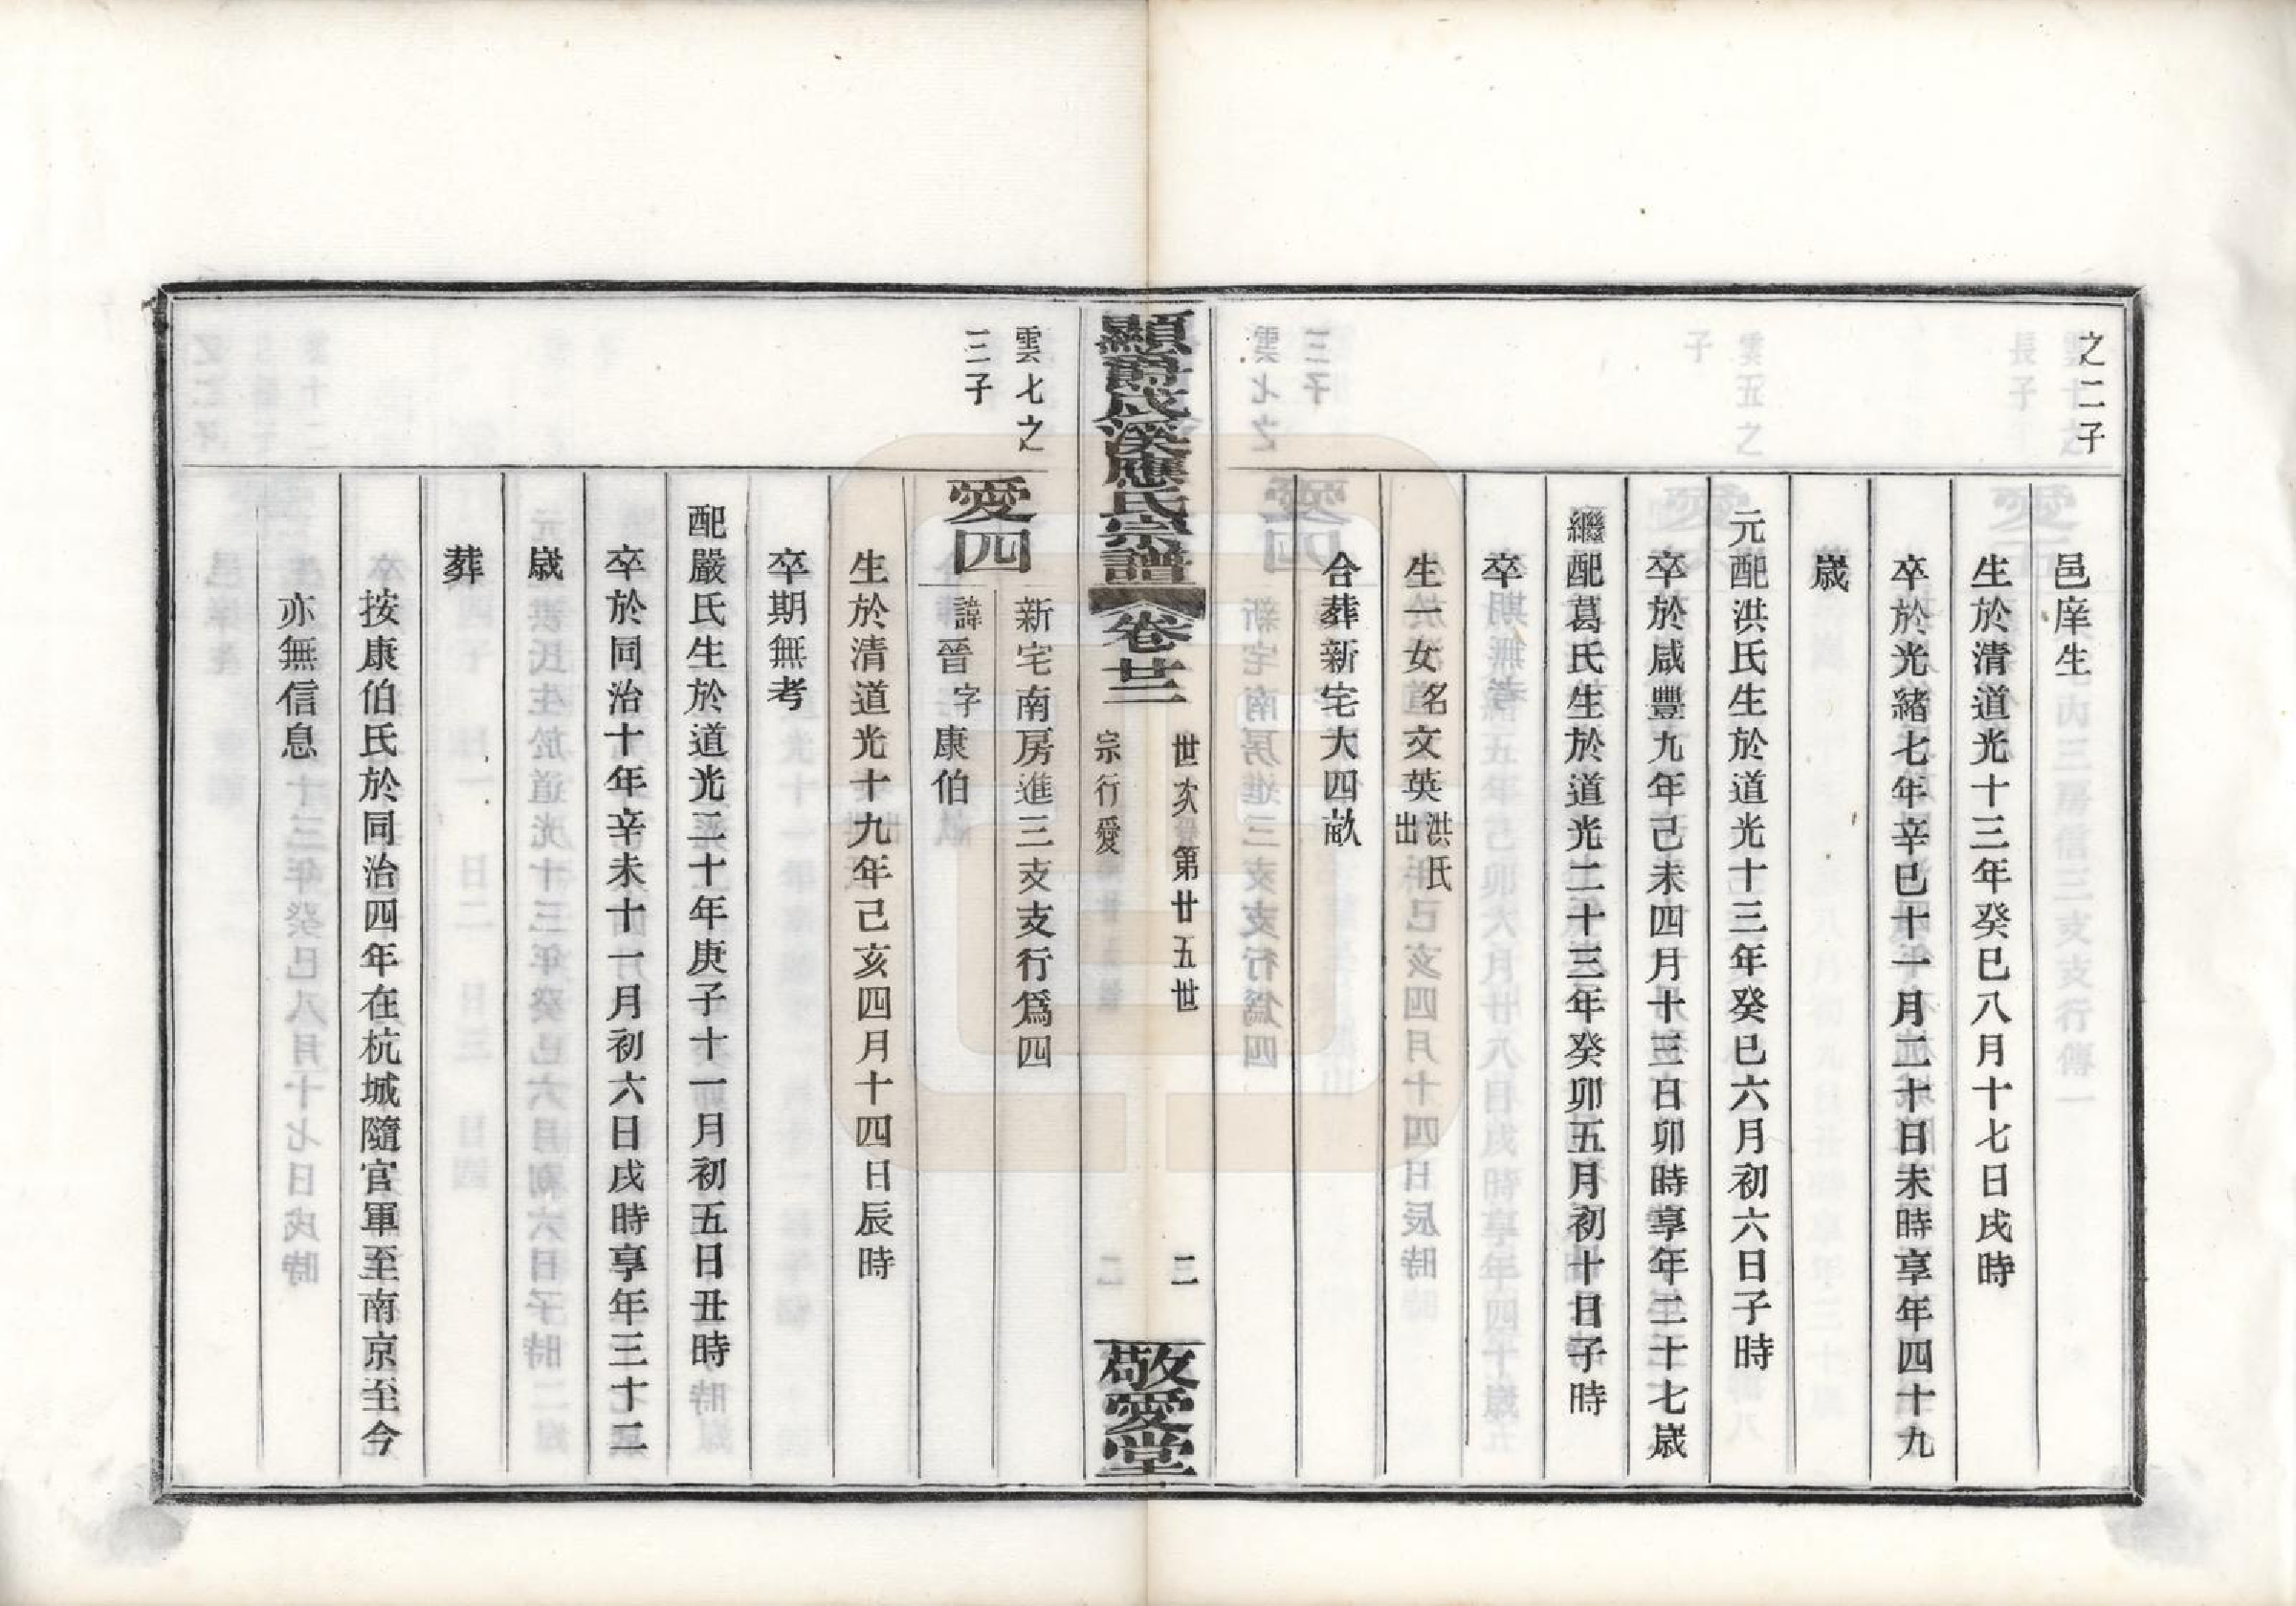 之二子
邑庠生
生於清道光十三年癸巳八月十七日戌時
卒於光緒七年辛巳十一月二十日未時享年四十九
歲
元配洪氏生於道光十三年癸巳六月初六日子時
卒於咸豐九年己未四月十三日卯時享年二十七歲
繼配葛氏生於道光二十三年癸卯五月初十日子時
卒
生一女名文英洪氏出
合葬新宅大四畝
顯爵茂溪應氏宗譜 卷廿三
世次第廿五世
宗行愛
二
敬愛堂
雲七之
三子
愛四
新宅南房進三支支行爲四
諱晉字康伯
生於清道光十九年己亥四月十四日辰時
卒期無考
配嚴氏生於道光二十年庚子十一月初五日丑時
卒於同治十年辛未十一月初六日戌時享年三十二
歲
葬
按康伯氏於同治四年在杭城隨官軍至南京至今
亦無信息